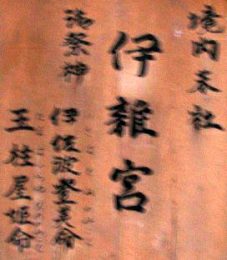 境内末社
伊雜宮
御祭神
伊佐波登美命
玉柱屋姫命